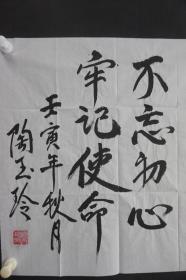 不忘初心
牢记使命
壬寅年秋月
陶玉玲